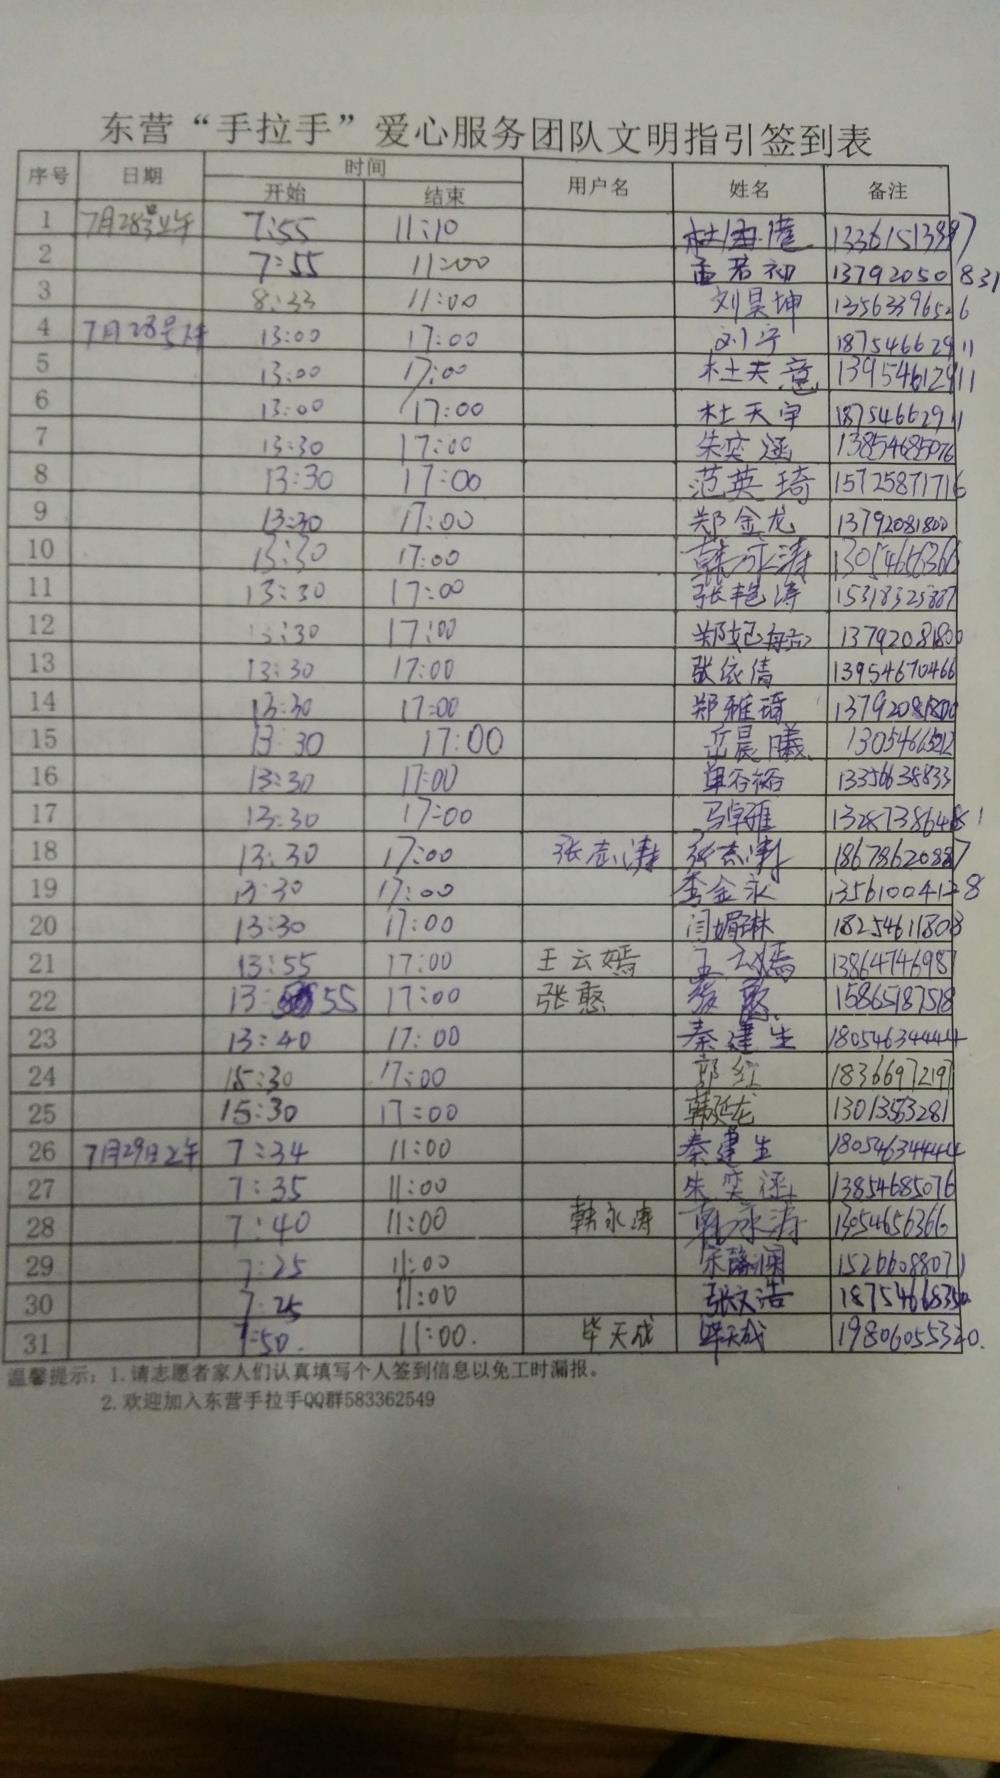 东营“手拉手”爱心服务团队文明指引签到表
序号 日期 时间 用户名 姓名 备注
开始 结束
1 7月28号上午 7:55 11:10
2 7:55 11:00 孟若初 13792050831
3 8:33 11:00 刘昊坤 13563396526
4 7月28号下午 13:00 17:00 刘宁 18754662911
5 13:00 17:00 杜天意 13954612911
6 13:00 17:00 杜天宇 18754662911
7 13:30 17:00 朱奕涵 13854685076
8 13:30 17:00 范英琦 15725871716
9 13:30 17:00 郑金龙 13792081800
10 13:30 17:00 韩永涛 13054656366
11 13:30 17:00 张艳涛 15318325887
12 13:30 17:00 13792081800
13 13:30 17:00 张依倩 13954670466
14 13:30 17:00 郑雅琦 13792081800
15 13:30 17:00 岳晨曦
16 13:30 17:00 13356638833
17 13:30 17:00 马卓雅
18 13:30 17:00 张志涛 张志涛 18678620887
19 13:30 17:00 李金永 13561004128
20 13:30 17:00 闫媚琳 18254611808
21 13:55 17:00 王云嫣 王云嫣 13864746987
22 13:55 17:00 张憨 张憨 15865187518
23 13:40 17:00 秦建生 18054634444
24 15:30 17:00 郭红 18366972197
25 15:30 17:00 韩延龙 13013553281
26 7月29日上午 7:34 11:00 秦建生 18054634444
27 7:35 11:00 朱奕涵 13854685076
28 7:40 11:00 韩永涛 韩永涛 13054656366
29 7:25 11:00 15266088071
30 7:25 11:00 张文浩
31 7:50. 11:00. 毕天成 毕天成 19806055320.
温馨提示：1.请志愿者家人们认真填写个人签到信息以免工时漏报。
2.欢迎加入东营手拉手QQ群583362549